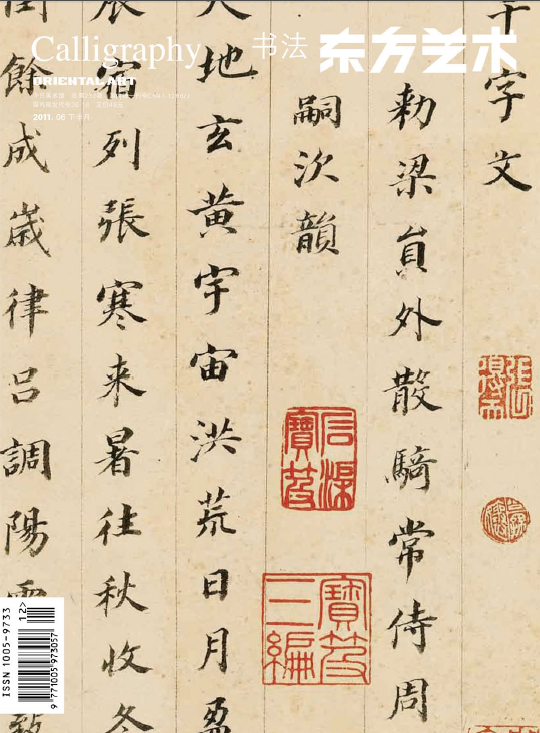 Calligraphy
书法
东方艺术
ORIENTAL ART
2011. 06 下半月
千字文
勑梁貟外散騎常侍周
嗣次韻
天地玄黃宇宙洪荒日月盈
宿列張寒来暑往秋收冬
閏餘成歲律吕調陽雲
寶笈三編
ISSN 1005-9733
12>
9 771005 973057